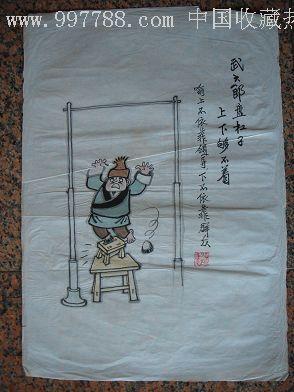 www.997788.com 中国收藏热
武大郎盘杠子
上下够不着
喻上不依靠领导下不依靠群众